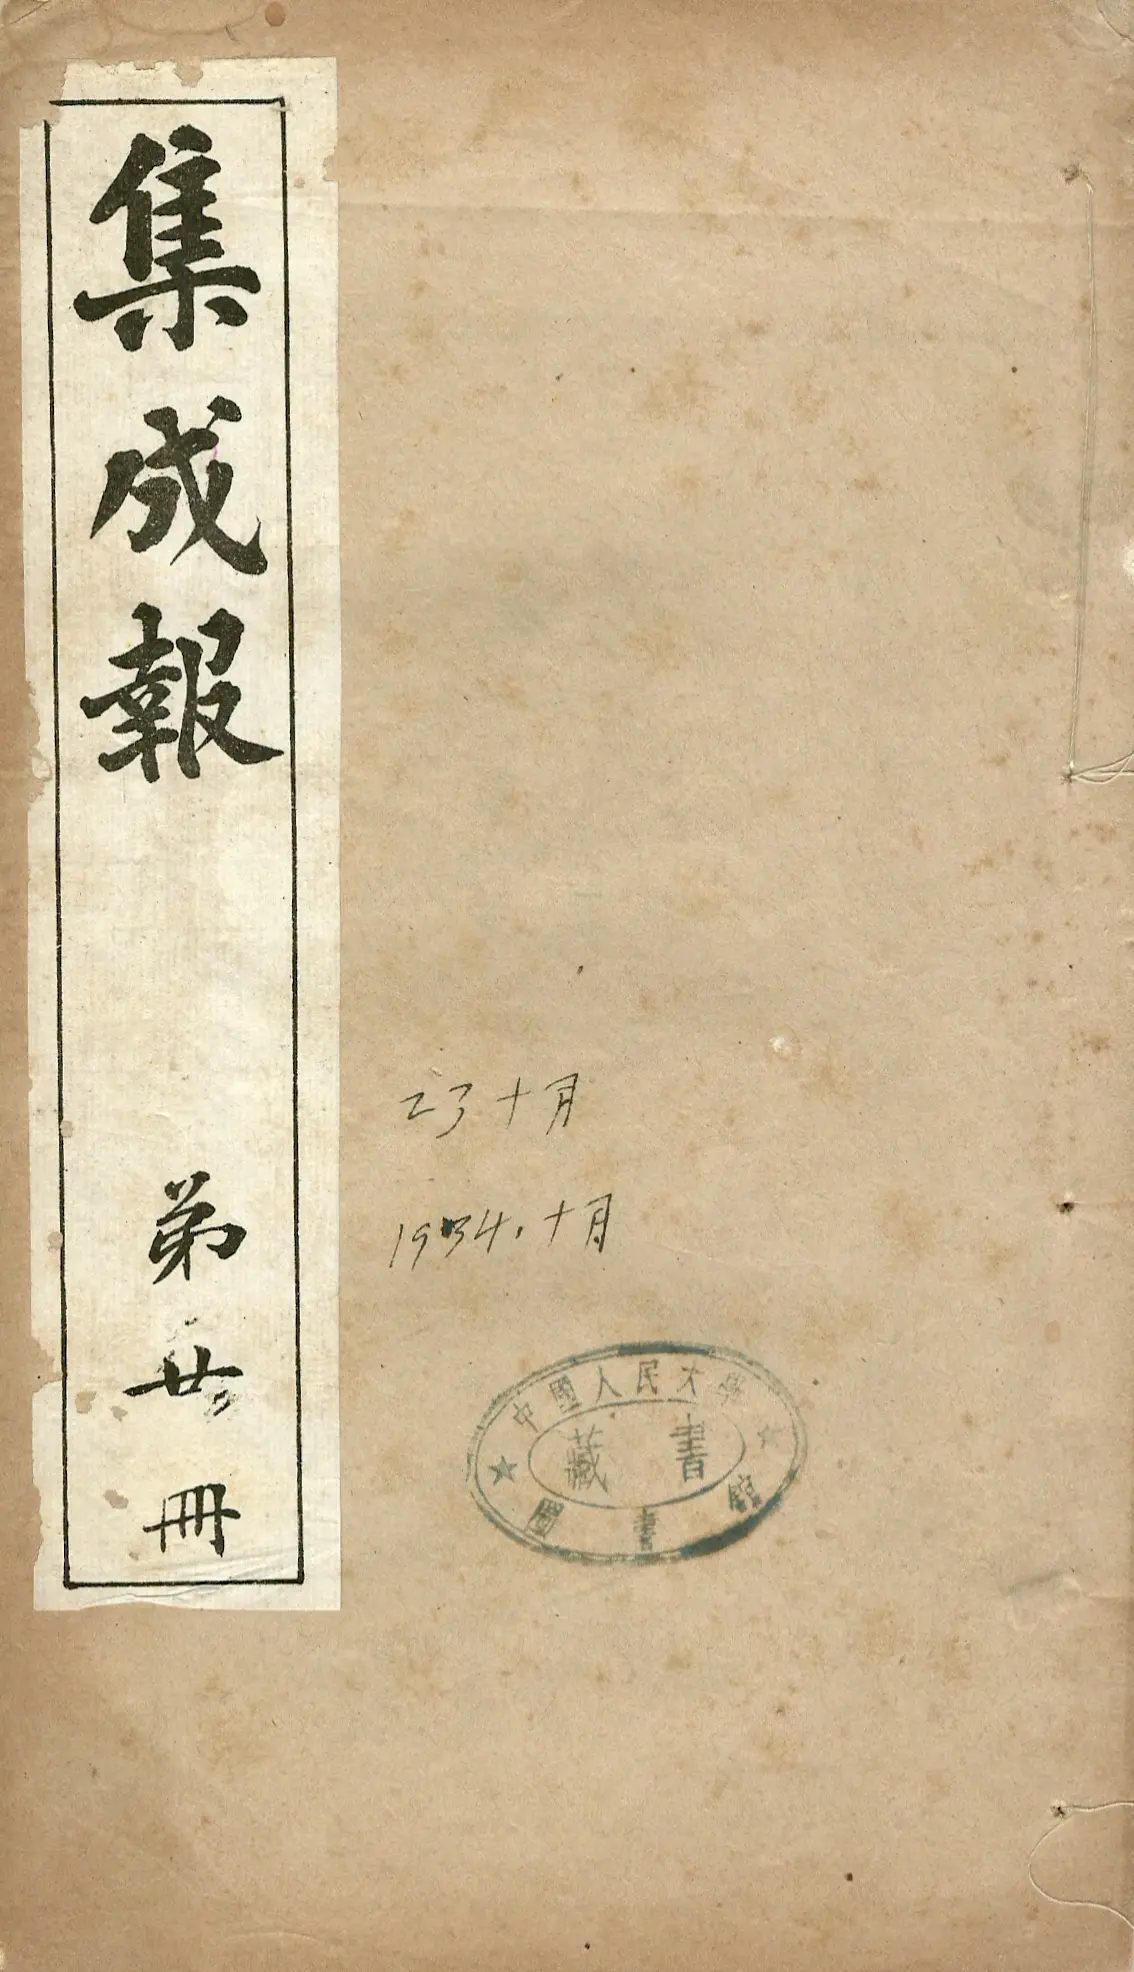 集成報
第廿冊
23十月
1934.十月
中國人民大學
藏書
圖書館